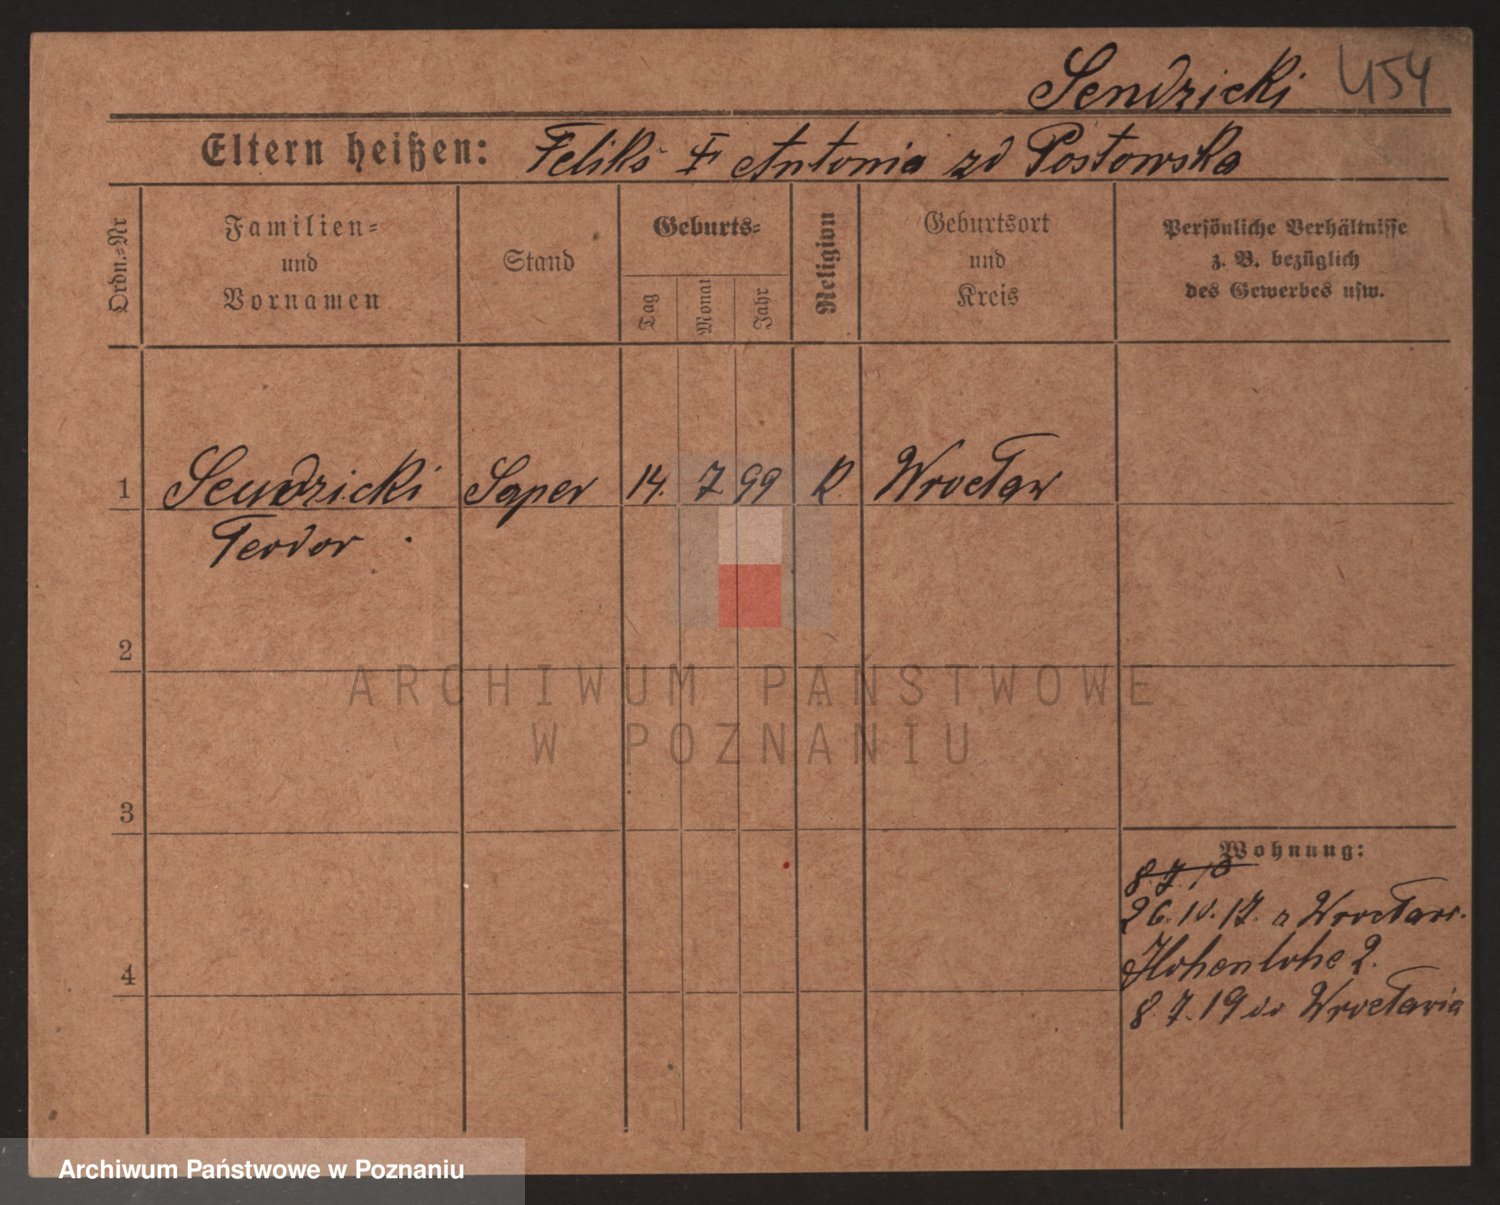 Sendzicki 454
Eltern heißen: Feliks † Antonia zd Postowska
Ordn.-Nr
Familien-
und
Vornamen
Stand
Geburts-
Tag
Monat
Jahr
Religion
Geburtsort
und
Kreis
Persönliche Verhältnisse
z. B. bezüglich
des Gewerbes usw.
1 Sendzicki Saper 14. 7 99 R Wrocław
Teodor .
2
3
4
Wohnung:
8.7.18
26.10.17. z Wrocław.
Hohenlohe 2.
8 7.19 do Wrocławia
ARCHIWUM PAŃSTWOWE
W POZNANIU
Archiwum Państwowe w Poznaniu